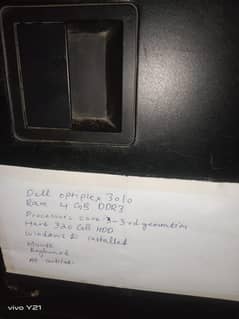 Dell optiplex 3010
Ram 4 GB DDR3
Processor core 3-3rd generation
Hard 320 GB HDD
Windows 10 installed
Mouse
keyboard
All cables
vivo Y21